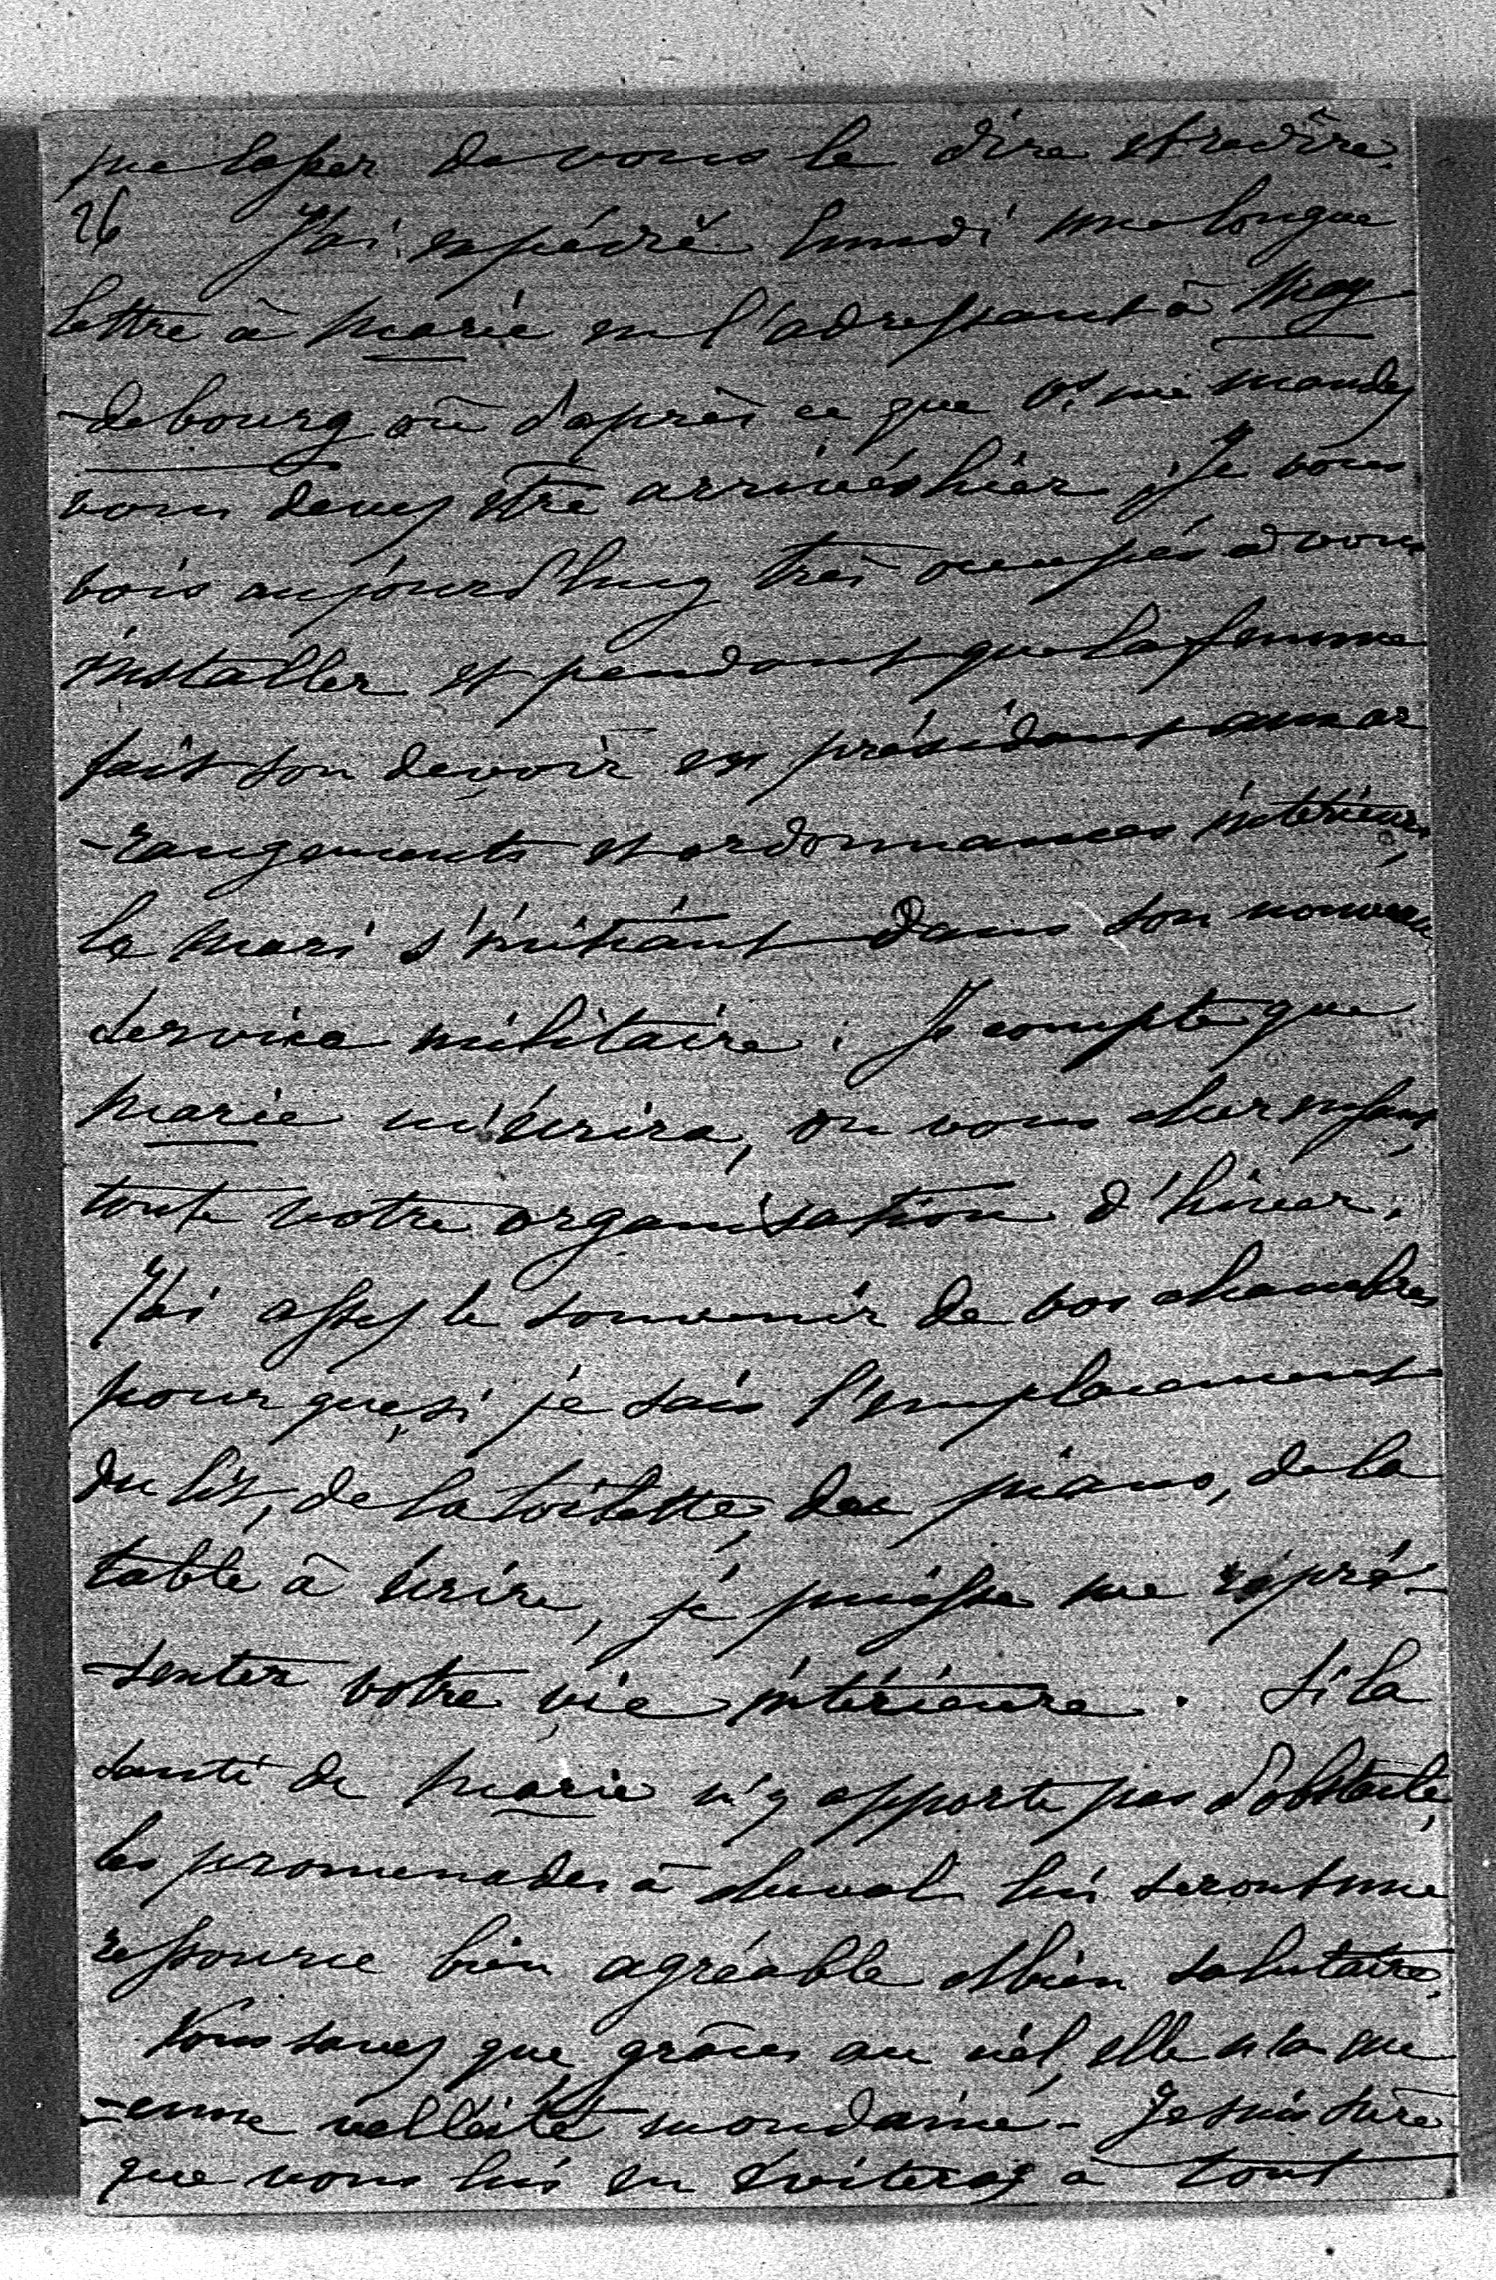 me lasser de vous le dire et redire.
26 J'ai expédié lundi une longue
lettre à Marie en l'adressant à Mag
-debourg où d'après ce que vs me mandez
vous devez être arrivés hier. Je vous
vois aujourd'huy très occupés à vous
installer et pendant que la femme
fait son devoir en présidant aux ar
-rangements et ordonnances intérieurs,
le mari s'initiant dans son nouveau
service militaire. Je compte que
Marie m'écrira, ou vous cher enfant,
toute votre organisation d'hiver.
J'ai assez le souvenir de vos chambres
pour que, si je sais l'emplacement
du lit, de la toilette, du piano, de la
table à écrire, je puisse me repré-
-senter votre vie intérieure. Si la
santé de Marie n'y apporte pas d'obstacle,
les promenades à cheval lui seront une
ressource bien agréable et bien salutaire.
Vous savez que grâces au ciel, elle n'a au
-cune velléité mondaine - Je suis sûre
que vous lui en éviterez à tout